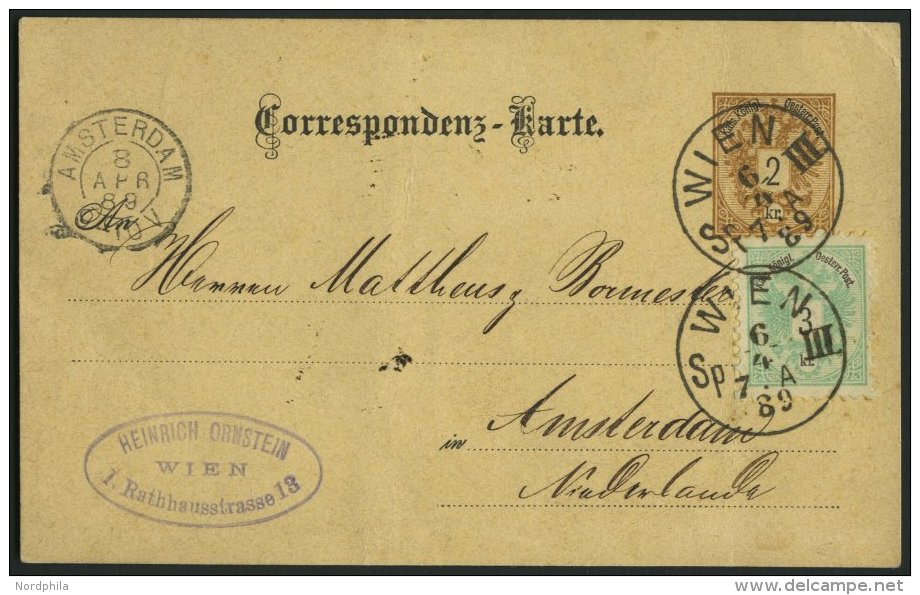 Correspondenz-Karte.
Kais. Königl. Oesterr. Post
2
kr.
WIEN
III.
6
4
7. A
89
S P
AMSTERDAM
8
APR
89
An
Königl. Oesterr. Post.
3
kr
WIEN
III.
6
4
7. A
89
S P
Herren Mattheus &
Amsterdam
in
Niederlande
HEINRICH ORNSTEIN
WIEN
1. Rathhausstrasse 13
Nordphila
www.delcampe.net